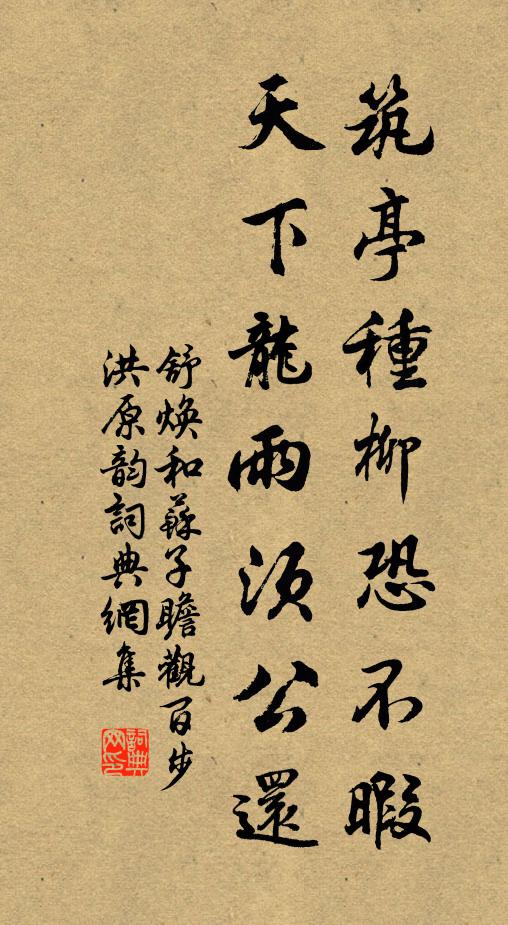 筑亭種柳恐不暇
天下龍雨須公還
舒煥和蘇子瞻觀百步
洪原韵詞典網集
詞典網印